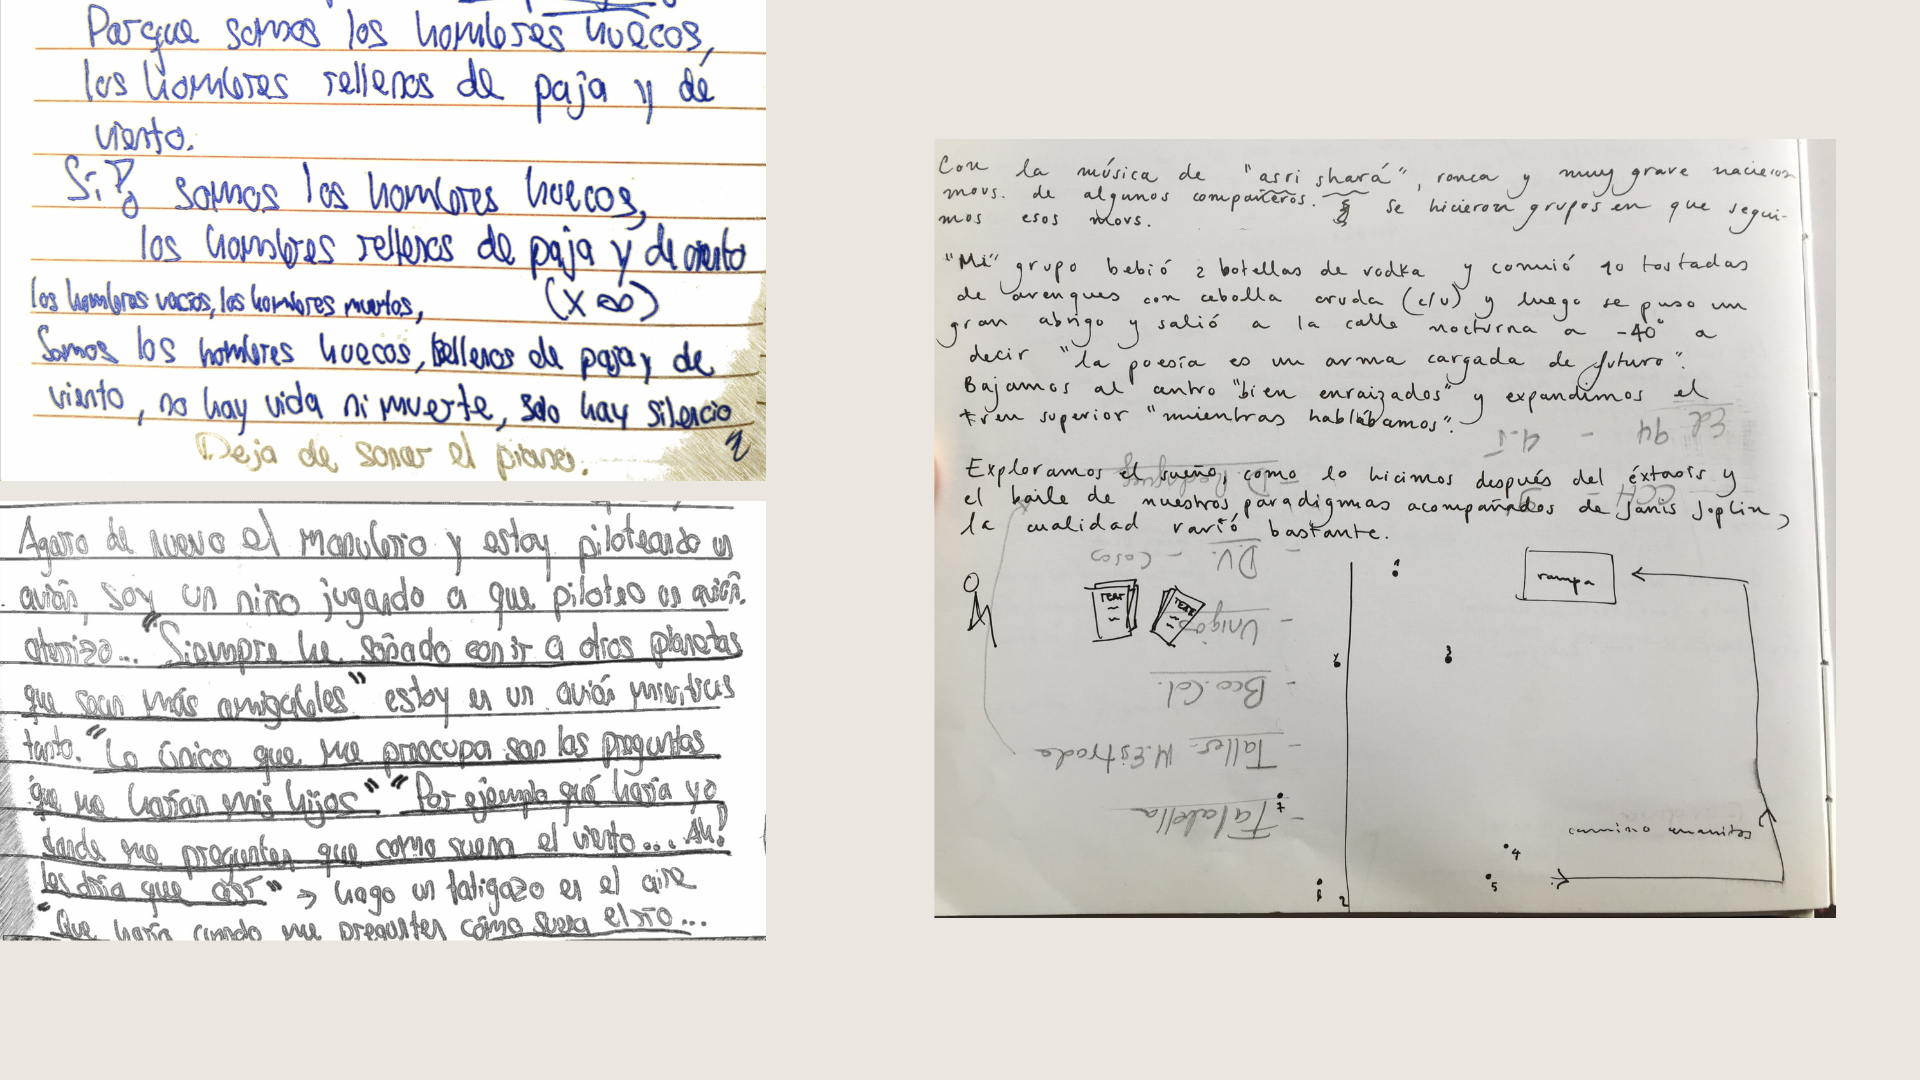 Porque somos los hombres huecos,
los hombres rellenos de paja y de
viento.
Si? somos los hombres huecos,
los hombres rellenos de paja y de viento
los hombres vacios, los hombres muertos,
(x ∞)
Somos los hombres huecos, rellenos de paja y de
viento, no hay vida ni muerte, solo hay silencio
Deja de sonar el piano.
Agarro de nuevo el manubrio y estoy piloteando un
avión, soy un niño jugando a que piloteo un avión.
aterrizo... "Siempre he soñado con ir a otros planetas
que sean más amigables" estoy en un avión mientras
tanto. "Lo único que me preocupa son las preguntas
que me harían mis hijos" "Por ejemplo qué haría yo
cuando me pregunten que como suena el viento... Ah!
les diría que así" → hago un latigazo en el aire
"Que haría cuando me pregunten cómo suena el río...
Con la música de "asri shará", ronca y muy grave nacieron
movs. de algunos compañeros. se hicieron grupos en que segui-
mos esos movs.
"Mi" grupo bebió 2 botellas de vodka y comió 10 tostadas
de arenques con cebolla cruda (c/u) y luego se puso un
gran abrigo y salió a la calle nocturna a -40° a
decir "la poesía es un arma cargada de futuro".
Bajamos al centro "bien enraizados" y expandimos el
tren superior "mientras hablábamos".
Exploramos el sueño, como lo hicimos después del éxtasis y
el baile de nuestros paradigmas acompañados de Janis Joplin,
la cualidad varió bastante.
TEXT
TEXT
rampa
3
camino amanitas
4
5
2
7
Ed 94 - 4-5
D. Rodriguez
CCH
- D.V. - Cosas
- Unigos
- Bco. Col.
- Taller M. Estrada
- Falabella